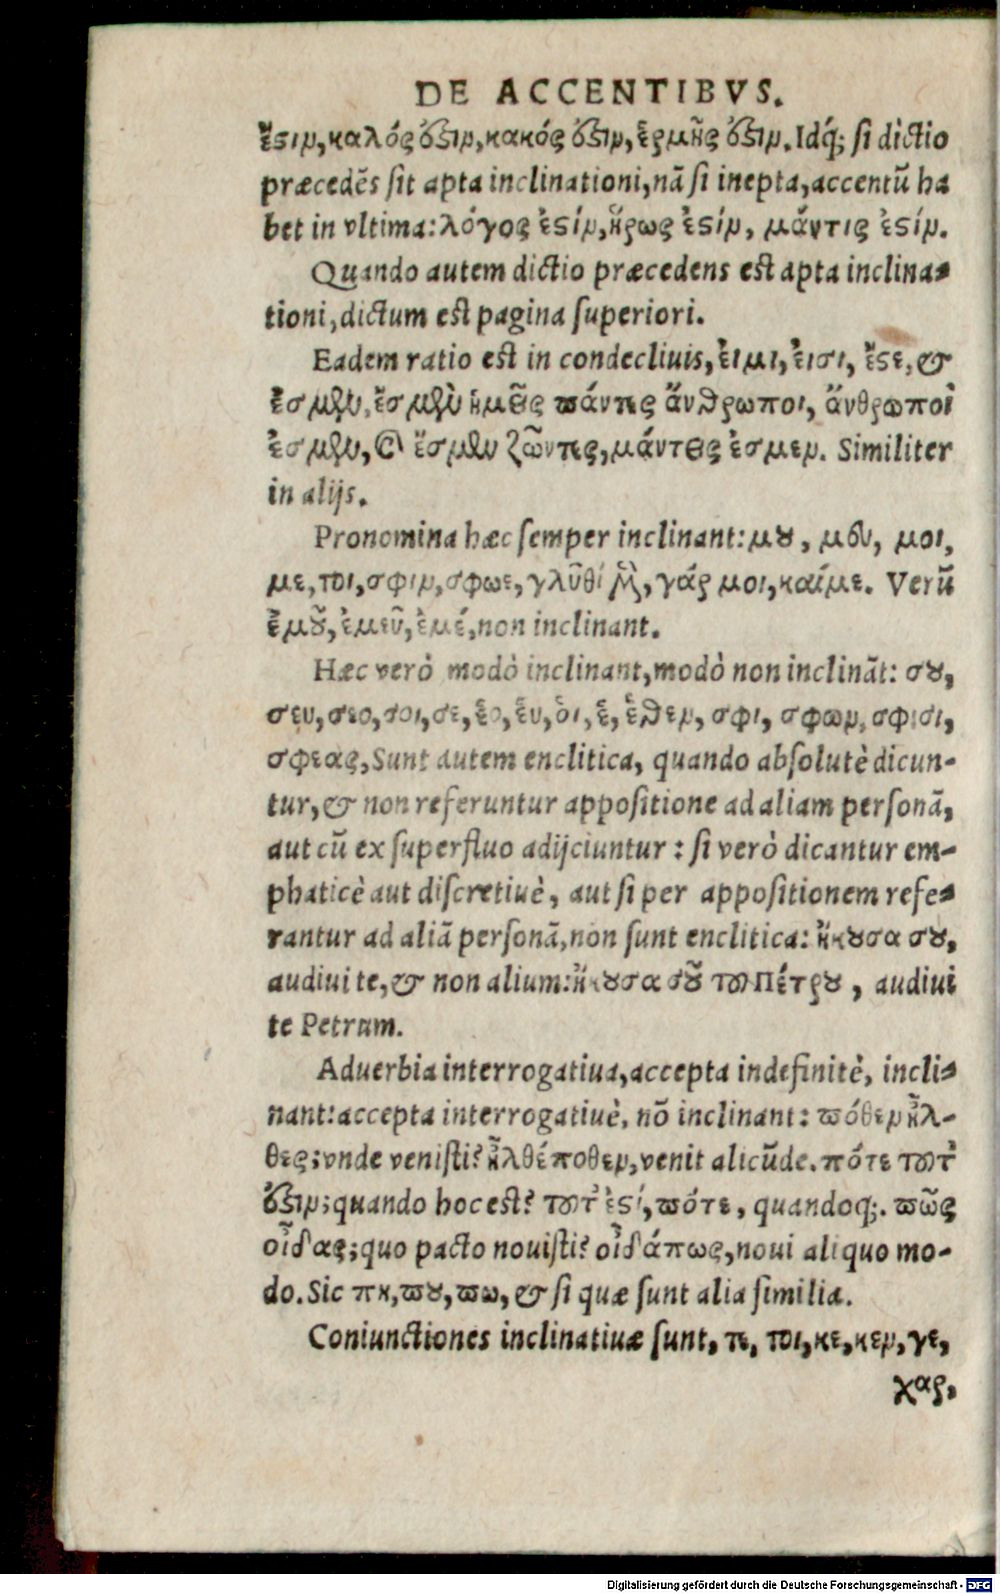 DE ACCENTIBVS.
ἔςιν, καλός ὅξιν, κακός ὅξιν, ἑρμῆς ὅξιν. Idq́; si dictio
præcedẽs sit apta inclinationi, nã si inepta, accentũ ha
bet in vltima: λόγος ἐςίν, ἥρως ἐςίν, μάντις ἐςίν.
Quando autem dictio præcedens est apta inclina-
tioni, dictum est pagina superiori.
Eadem ratio est in condecliuis, ἐιμι, ἐισι, ἔςε, &
ἔσμὲν, ἔσμὲν ἡμεῖς πάντες ἄνθρωποι, ἄνθρωποί
ἐσμεν, & ἔσμὲν ζῶντες, μάντεις ἐσμεν. Similiter
in alijs.
Pronomina hæc semper inclinant: μȣ, μευ, μοι,
με, τοι, σφιν, σφωε, γλῦθί μȣ, γάρ μοι, καίμε. Verũ
ἐμȣ͂, ἐμεῦ, ἐμέ, non inclinant.
Hæc verò modò inclinant, modò non inclinãt: σȣ,
σευ, σεο, σοι, σε, ἑο, ἑυ, ὁι, ἑ, ἑθεν, σφι, σφων, σφισι,
σφεας, Sunt autem enclitica, quando absolutè dicun-
tur, & non referuntur appositione ad aliam personã,
aut cũ ex superfluo adijciuntur : si verò dicantur em-
phaticè aut discretiuè, aut si per appositionem refe-
rantur ad aliã personã, non sunt enclitica: ἤκȣσα σȣ,
audiui te, & non alium: ἤκȣσα σȣ͂ τȣ Πέτρȣ, audiui
te Petrum.
Aduerbia interrogatiua, accepta indefinitè, incli-
nant: accepta interrogatiuè, nõ inclinant: πόθεν ἦλ-
θες; vnde venisti? ἦλθέποθεν, venit alicũde. πότε τȣτ'
ὅξιν; quando hoc est? τȣτ' ἐςί, πότε, quandoq;. πῶς
οἶδας; quo pacto nouisti? οἶδάπως, noui aliquo mo-
do. Sic πη, πȣ, πω, & si quæ sunt alia similia.
Coniunctiones inclinatiuæ sunt, τε, τοι, κε, κεν, γε,
χαρ,
Digitalisierung gefördert durch die Deutsche Forschungsgemeinschaft - DFG